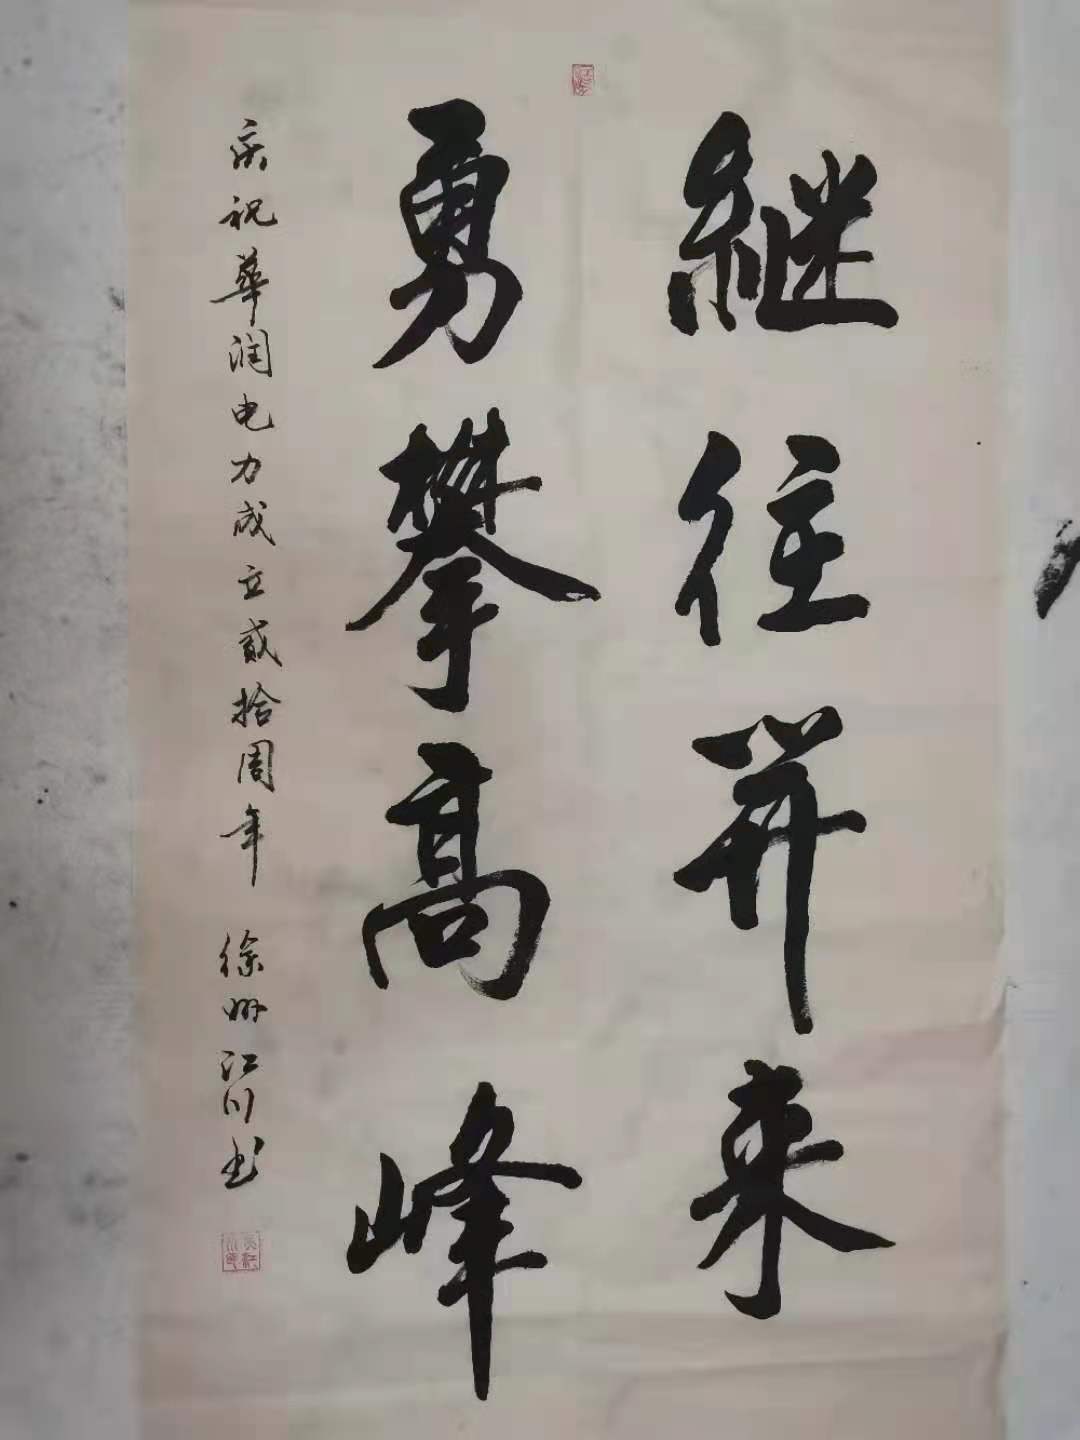 继往开来
勇攀高峰
庆祝华润电力成立贰拾周年 徐州江川书